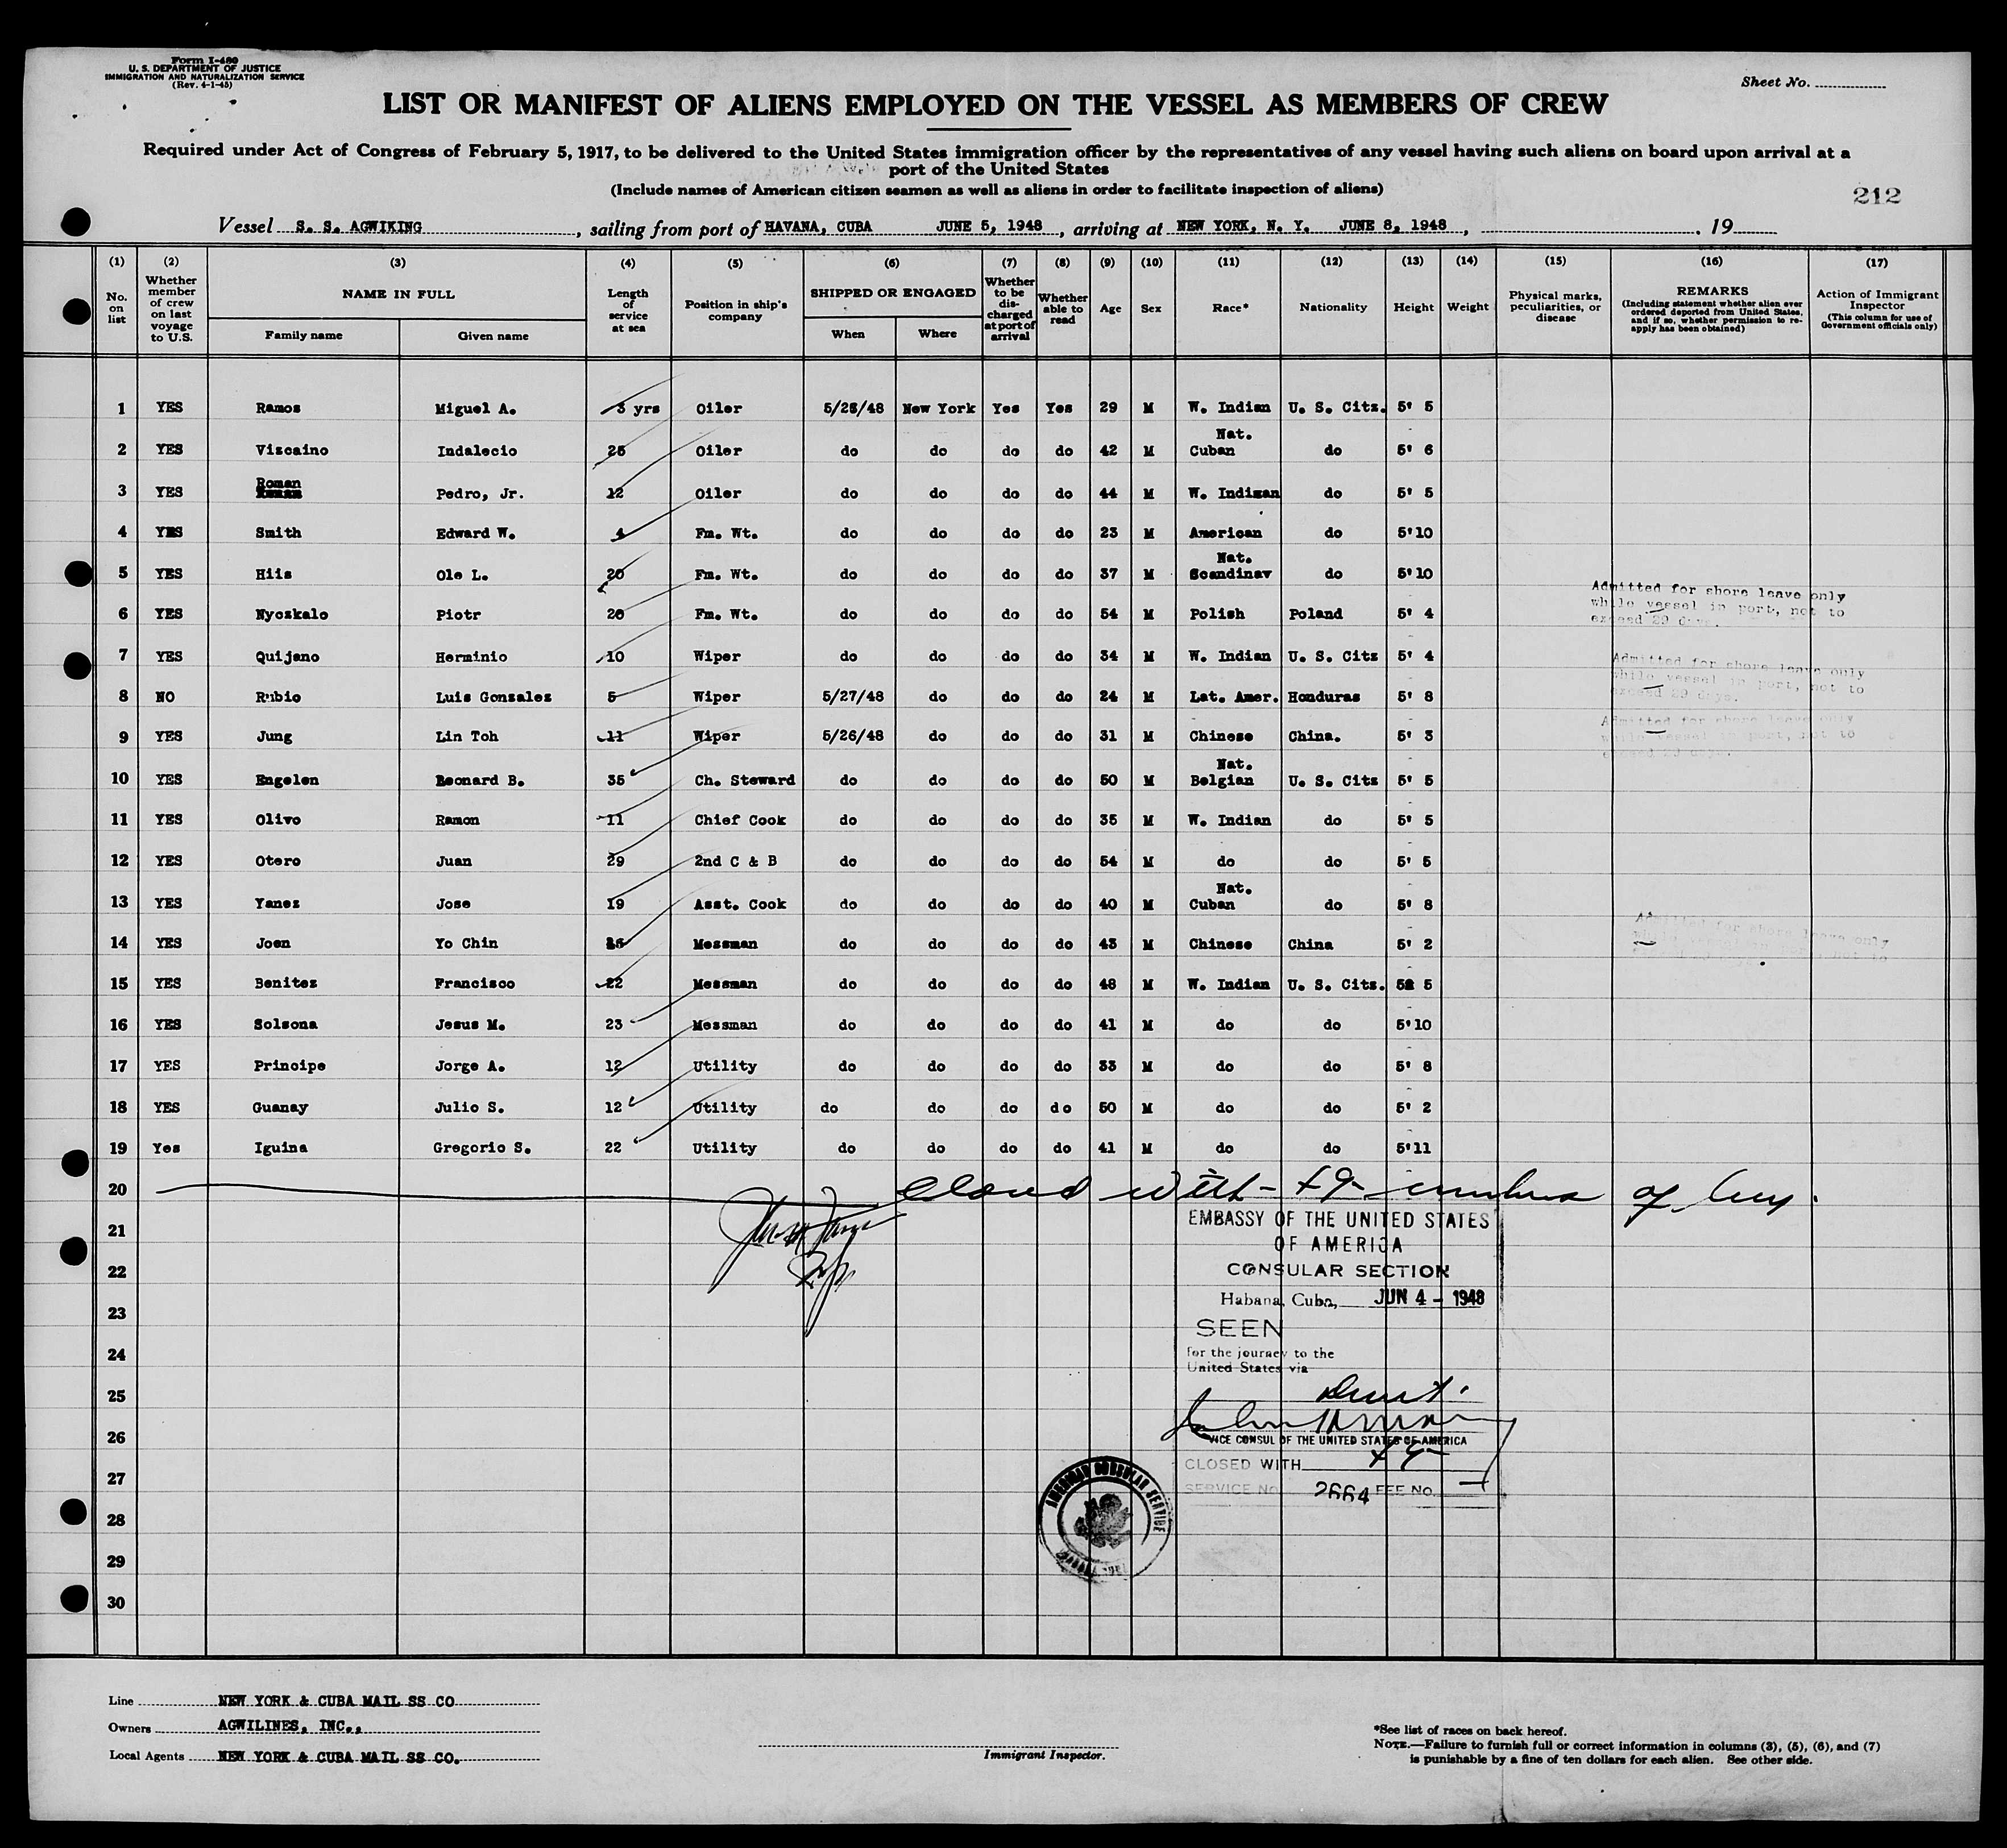 Form I-480
U. S. DEPARTMENT OF JUSTICE
IMMIGRATION AND NATURALIZATION SERVICE
(Rev. 4-1-45)
Sheet No.
LIST OR MANIFEST OF ALIENS EMPLOYED ON THE VESSEL AS MEMBERS OF CREW
Required under Act of Congress of February 5, 1917, to be delivered to the United States immigration officer by the representatives of any vessel having such aliens on board upon arrival at a
port of the United States
(Include names of American citizen seamen as well as aliens in order to facilitate inspection of aliens)
212
Vessel S. S. AGWIKING, sailing from port of HAVANA, CUBA JUNE 5, 1948, arriving at NEW YORK, N. Y. JUNE 8, 1948, 19
(1) No. on list
(2) Whether member of crew on last voyage to U.S.
(3) NAME IN FULL Family name Given name
(4) Length of service at sea
(5) Position in ship's company
(6) SHIPPED OR ENGAGED When Where
(7) Whether to be discharged at port of arrival
(8) Whether able to read
(9) Age
(10) Sex
(11) Race*
(12) Nationality
(13) Height
(14) Weight
(15) Physical marks, peculiarities, or disease
(16) REMARKS (Including statement whether alien ever ordered deported from United States, and if so, whether permission to re-apply has been obtained)
(17) Action of Immigrant Inspector (This column for use of Government officials only)
1 YES Ramos Miguel A. 3 yrs Oiler 5/26/48 New York Yes Yes 29 M W. Indian U. S. Citz. 5' 5
2 YES Viscaino Indalecio 25 Oiler do do do do 42 M Nat. Cuban do 5' 6
3 YES Roman Pedro, Jr. 12 Oiler do do do do 44 M W. Indian do 5' 5
4 YES Smith Edward W. 4 Fm. Wt. do do do do 23 M American do 5'10
5 YES Hiis Ole L. 20 Fm. Wt. do do do do 37 M Nat. Scandinav do 5'10
6 YES Nyczkalo Piotr 20 Fm. Wt. do do do do 54 M Polish Poland 5' 4
Admitted for shore leave only
while vessel in port, not to
exceed 29 days.
7 YES Quijano Herminio 10 Wiper do do do do 34 M W. Indian U. S. Citz 5' 4
8 NO Rubio Luis Gonzalez 5 Wiper 5/27/48 do do do 24 M Lat. Amer. Honduras 5' 8
Admitted for shore leave only
while vessel in port, not to
exceed 29 days.
9 YES Jung Lin Toh 11 Wiper 5/26/48 do do do 31 M Chinese China. 5' 3
Admitted for shore leave only
while vessel in port, not to
exceed 29 days.
10 YES Engelen Leonard B. 35 Ch. Steward do do do do 50 M Nat. Belgian U. S. Citz 5' 5
11 YES Olivo Ramon 11 Chief Cook do do do do 35 M W. Indian do 5' 5
12 YES Otero Juan 29 2nd C & B do do do do 54 M do do 5' 5
13 YES Yanez Jose 19 Asst. Cook do do do do 40 M Nat. Cuban do 5' 8
14 YES Joen Yo Chin Messman do do do do 43 M Chinese China 5' 2
Admitted for shore leave only
15 YES Benitez Francisco 22 Messman do do do do 48 M W. Indian U. S. Citz. 5' 5
16 YES Solsona Jesus M. 23 Messman do do do do 41 M do do 5'10
17 YES Principe Jorge A. 12 Utility do do do do 33 M do do 5' 8
18 YES Guanay Julio S. 12 Utility do do do do 50 M do do 5' 2
19 Yes Iguina Gregorio S. 22 Utility do do do do 41 M do do 5'11
20 Closed with 49 members of crew.
21
22
23
24
25
26
27
28
29
30
EMBASSY OF THE UNITED STATES
OF AMERICA
CONSULAR SECTION
Habana, Cuba, JUN 4 - 1948
SEEN
for the journey to the
United States via
Direct
VICE CONSUL OF THE UNITED STATES OF AMERICA
CLOSED WITH 49
SERVICE No. 2664 FEE NO.
AMERICAN CONSULAR SERVICE
Line NEW YORK & CUBA MAIL SS CO
Owners AGWILINES, INC.,
Local Agents NEW YORK & CUBA MAIL SS CO.
Immigrant Inspector.
*See list of races on back hereof.
NOTE.—Failure to furnish full or correct information in columns (3), (5), (6), and (7)
is punishable by a fine of ten dollars for each alien. See other side.